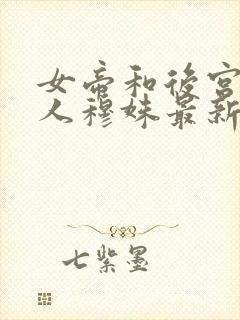 女帝和后宫
人穆妹最新
七紫墨